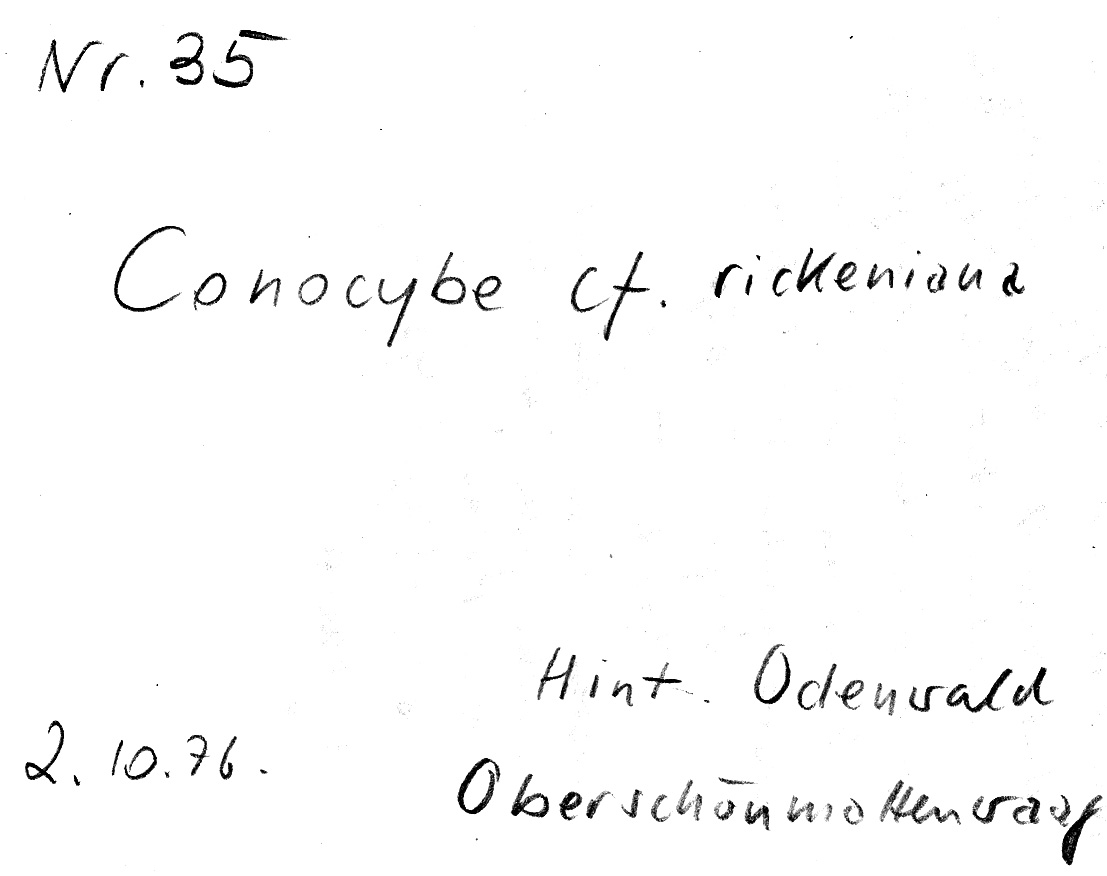 Nr. 35
Conocybe cf. rickeniana
Hint. Odenwald
2.10.76.
Oberschönmattenwag